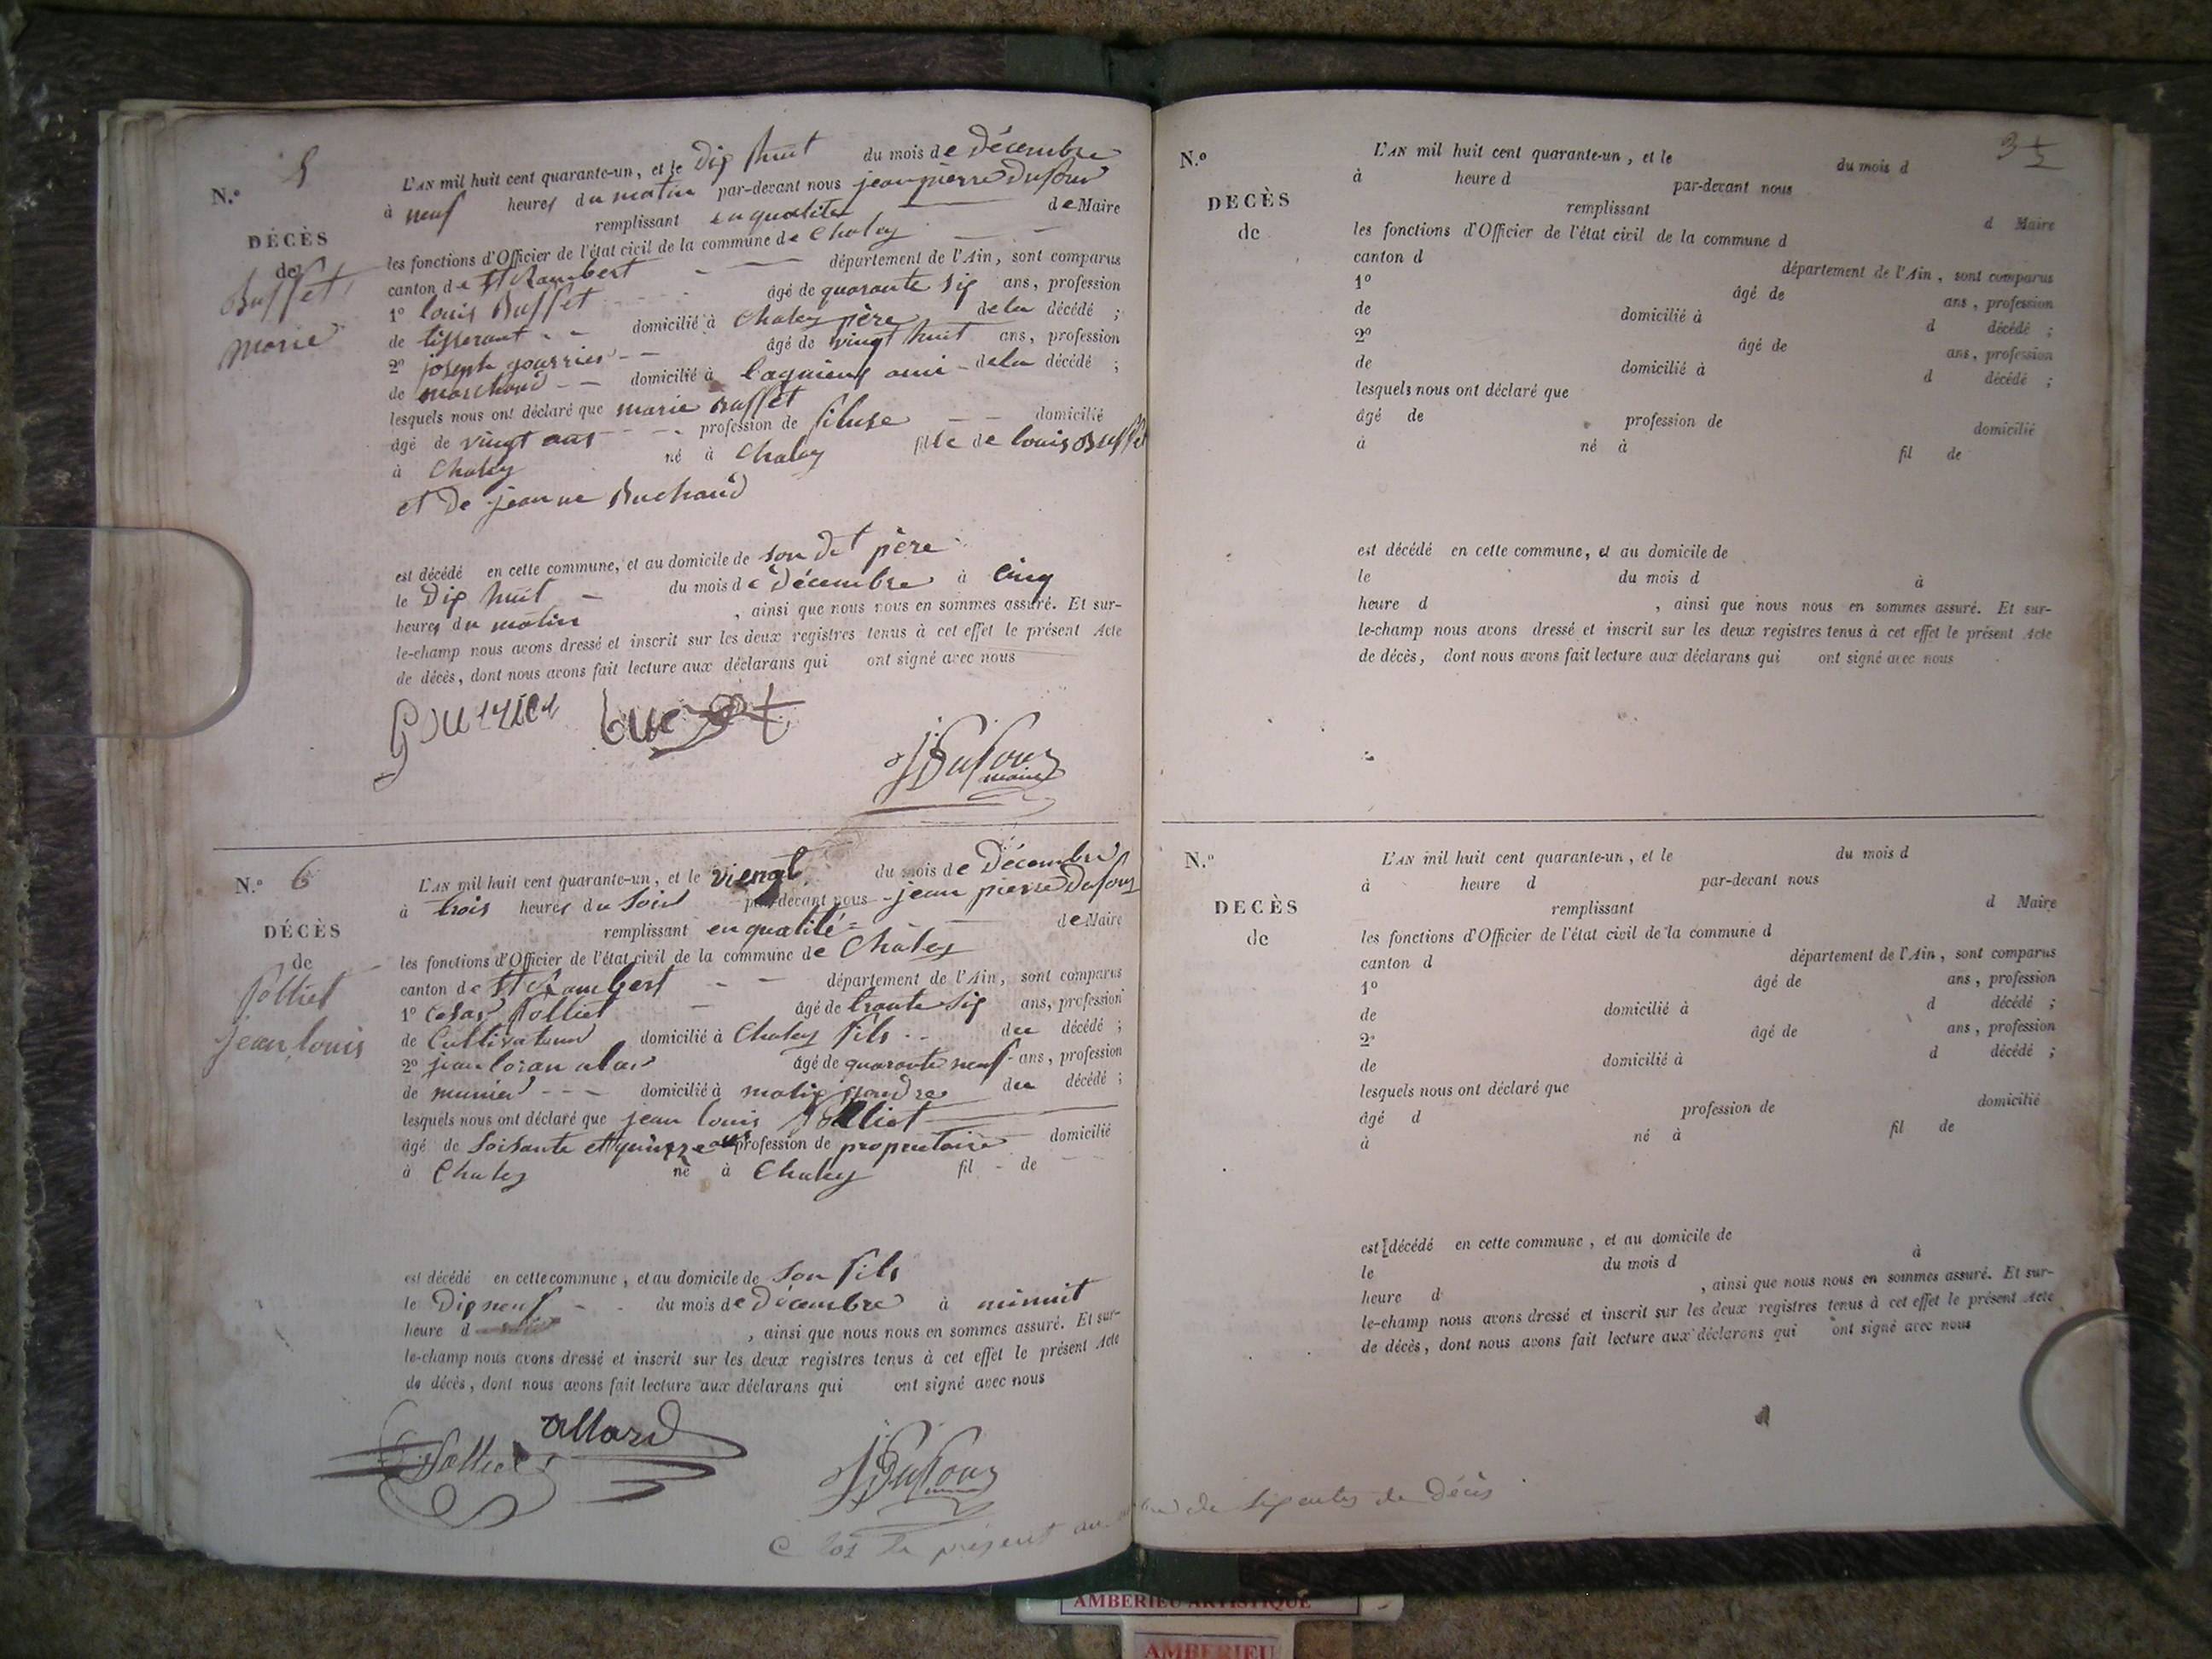 N.° 5
DÉCÈS
de
Buffet
marie
L'AN mil huit cent quarante-un, et le Dix huit du mois de Décembre
à neuf heures du matin par-devant nous jean pierre Dufour
remplissant en qualité de Maire
les fonctions d'Officier de l'état civil de la commune de Chaley
canton de St Rambert département de l'Ain, sont comparus
1º louis Buffet âgé de quarante six ans, profession
de tisserant domicilié à Chaley père de la décédé ;
2º joseph gourrier âgé de vingt huit ans, profession
de marchand domicilié à lagnieux ami de la décédé ;
lesquels nous ont déclaré que marie Buffet
âgé de vingt ans profession de fileuse domicilié
à Chaley né à Chaley fille de louis Buffet
et De jeanne Buchard
est décédé en cette commune, et au domicile de son Dt père
le Dix huit du mois de Décembre à cinq
heures du matin , ainsi que nous nous en sommes assuré. Et sur-
le-champ nous avons dressé et inscrit sur les deux registres tenus à cet effet le présent Acte
de décès, dont nous avons fait lecture aux déclarans qui ont signé avec nous
Gourrier Buffet
JPDufour
maire
N.° 6
DÉCÈS
de
Jolliet
jean louis
L'AN mil huit cent quarante-un, et le viengt du mois de Décembre
à trois heures du Soir par-devant nous jean pierre Dufour
remplissant en qualité de Maire
les fonctions d'Officier de l'état civil de la commune de Chaley
canton de St Rambert département de l'Ain, sont comparus
1º Cesar Jolliet âgé de trante six ans, profession
de Cultivateur domicilié à Chaley fils du décédé ;
2º jean âgé de quarante neuf ans, profession
de munier domicilié à du décédé ;
lesquels nous ont déclaré que jean louis Jolliet
âgé de Soisante et quinze ans profession de propriétaire domicilié
à Chaley né à Chaley fil de
est décédé en cette commune, et au domicile de Son fils
le Dix neuf du mois de Décembre à minuit
heure d , ainsi que nous nous en sommes assuré. Et sur-
le-champ nous avons dressé et inscrit sur les deux registres tenus à cet effet le présent Acte
de décès, dont nous avons fait lecture aux déclarans qui ont signé avec nous
Jolliet allard
JPDufour
Clos le présent de Six actes de Décès
3 1/2
N.°
DECÈS
de
L'AN mil huit cent quarante-un, et le du mois d
à heure d par-devant nous
remplissant d Maire
les fonctions d'Officier de l'état civil de la commune d
canton d département de l'Ain, sont comparus
1º âgé de ans, profession
de domicilié à d décédé ;
2º âgé de ans, profession
de domicilié à d décédé ;
lesquels nous ont déclaré que
âgé de profession de domicilié
à né à fil de
est décédé en cette commune, et au domicile de
le du mois d à
heure d , ainsi que nous nous en sommes assuré. Et sur-
le-champ nous avons dressé et inscrit sur les deux registres tenus à cet effet le présent Acte
de décès, dont nous avons fait lecture aux déclarans qui ont signé avec nous
N.°
DECÈS
de
L'AN mil huit cent quarante-un, et le du mois d
à heure d par-devant nous
remplissant d Maire
les fonctions d'Officier de l'état civil de la commune d
canton d département de l'Ain, sont comparus
1º âgé de ans, profession
de domicilié à d décédé ;
2º âgé de ans, profession
de domicilié à d décédé ;
lesquels nous ont déclaré que
âgé d profession de domicilié
à né à fil de
est décédé en cette commune, et au domicile de
le du mois d à
heure d , ainsi que nous nous en sommes assuré. Et sur-
le-champ nous avons dressé et inscrit sur les deux registres tenus à cet effet le présent Acte
de décès, dont nous avons fait lecture aux déclarans qui ont signé avec nous
AMBERIEU ARTISTIQUE
AMBERIEU